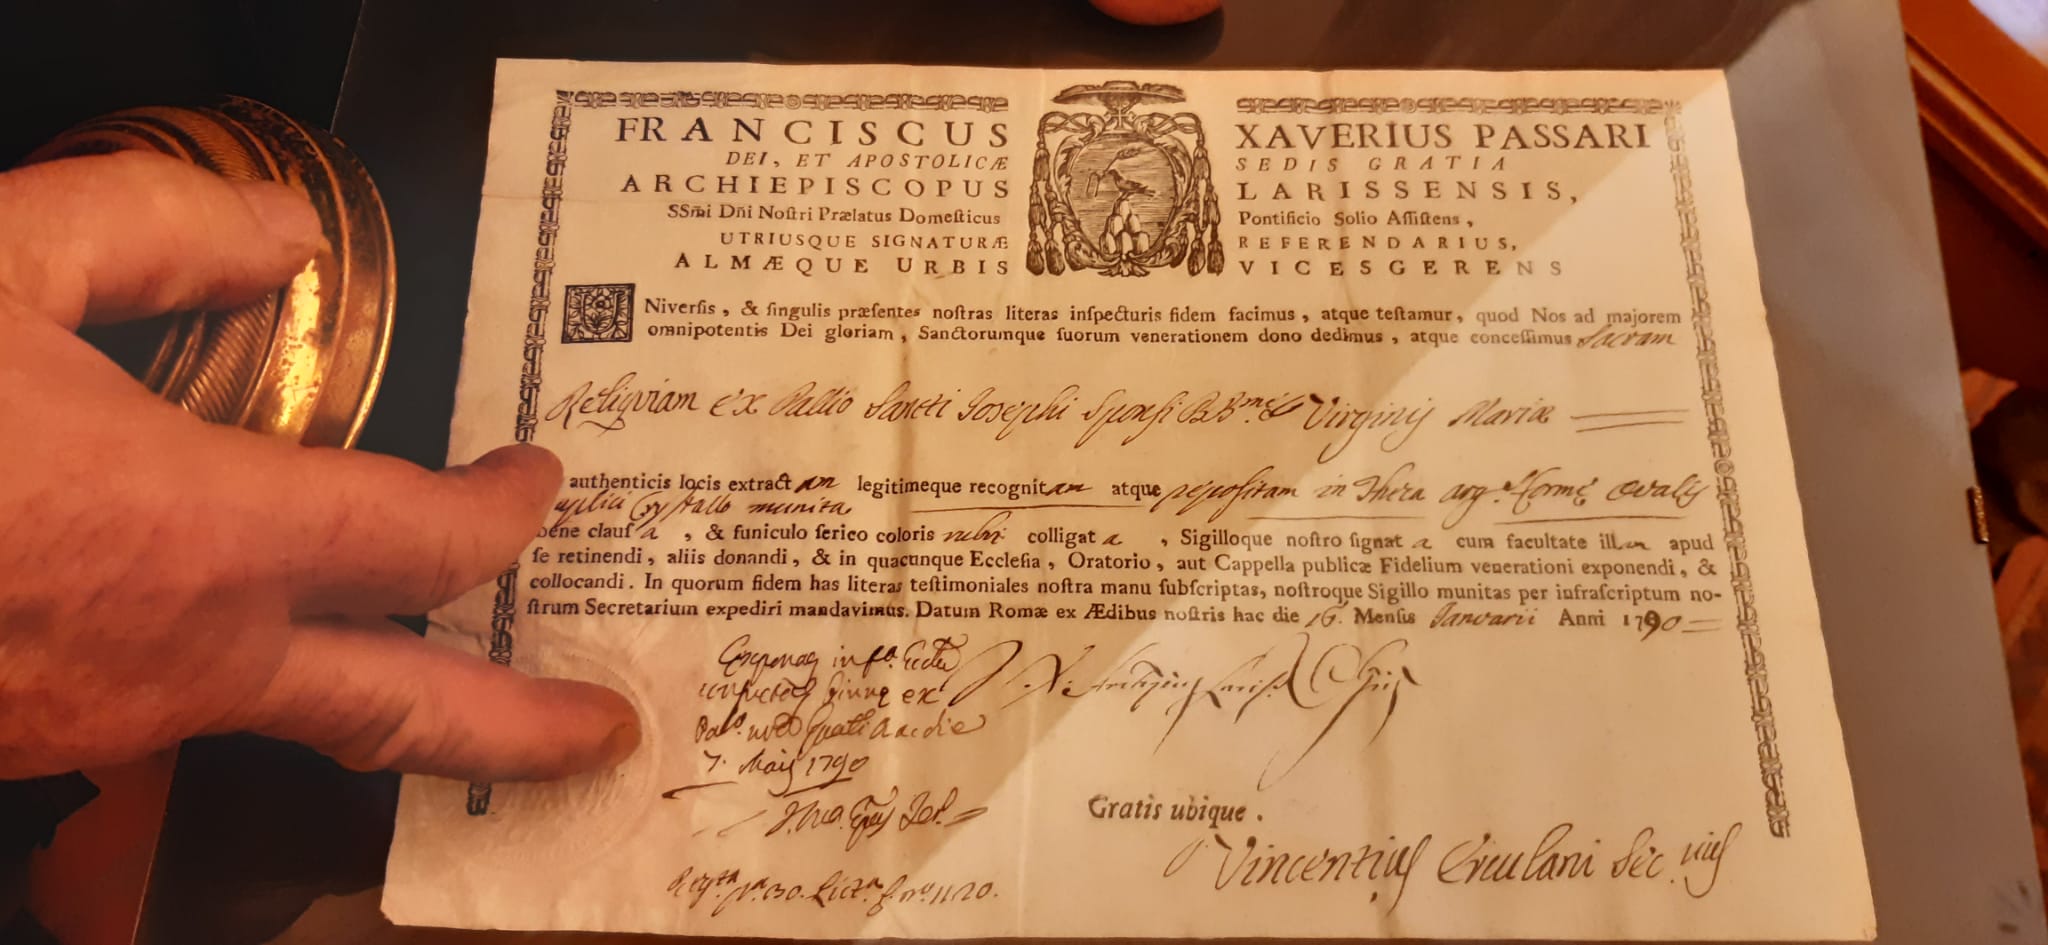 FRANCISCUS XAVERIUS PASSARI
DEI, ET APOSTOLICÆ SEDIS GRATIA
ARCHIEPISCOPUS LARISSENSIS,
SSm̄i Dn̄i Noſtri Prælatus Domeſticus Pontificio Solio Aſſiſtens,
UTRIUSQUE SIGNATURÆ REFERENDARIUS,
ALMÆQUE URBIS VICESGERENS
UNiverſis, & ſingulis præſentes noſtras literas inſpecturis fidem facimus, atque teſtamur, quod Nos ad majorem
omnipotentis Dei gloriam, Sanctorumque ſuorum venerationem dono dedimus, atque conceſſimus Sacram
Reliquiam ex Pallio Sancti Josephi Sponsi BB.mę Virginis Mariæ
authenticis locis extractam legitimeque recognitam atque repositam in Theca arg.a formę ovalis
Crystallo munita
bene clauſa, & funiculo ſerico coloris rubri colligata, Sigilloque noſtro ſignata cum facultate illam apud
ſe retinendi, aliis donandi, & in quacunque Eccleſia, Oratorio, aut Cappella publicæ Fidelium venerationi exponendi, &
collocandi. In quorum fidem has literas teſtimoniales noſtra manu ſubſcriptas, noſtroque Sigillo munitas per infraſcriptum no-
ſtrum Secretarium expediri mandavimus. Datum Romæ ex Ædibus noſtris hac die 16. Menſis Januarii Anni 1790
ex
die
7. Maij 1790
Gratis ubique.
Vincentius Erculani Sec.rius